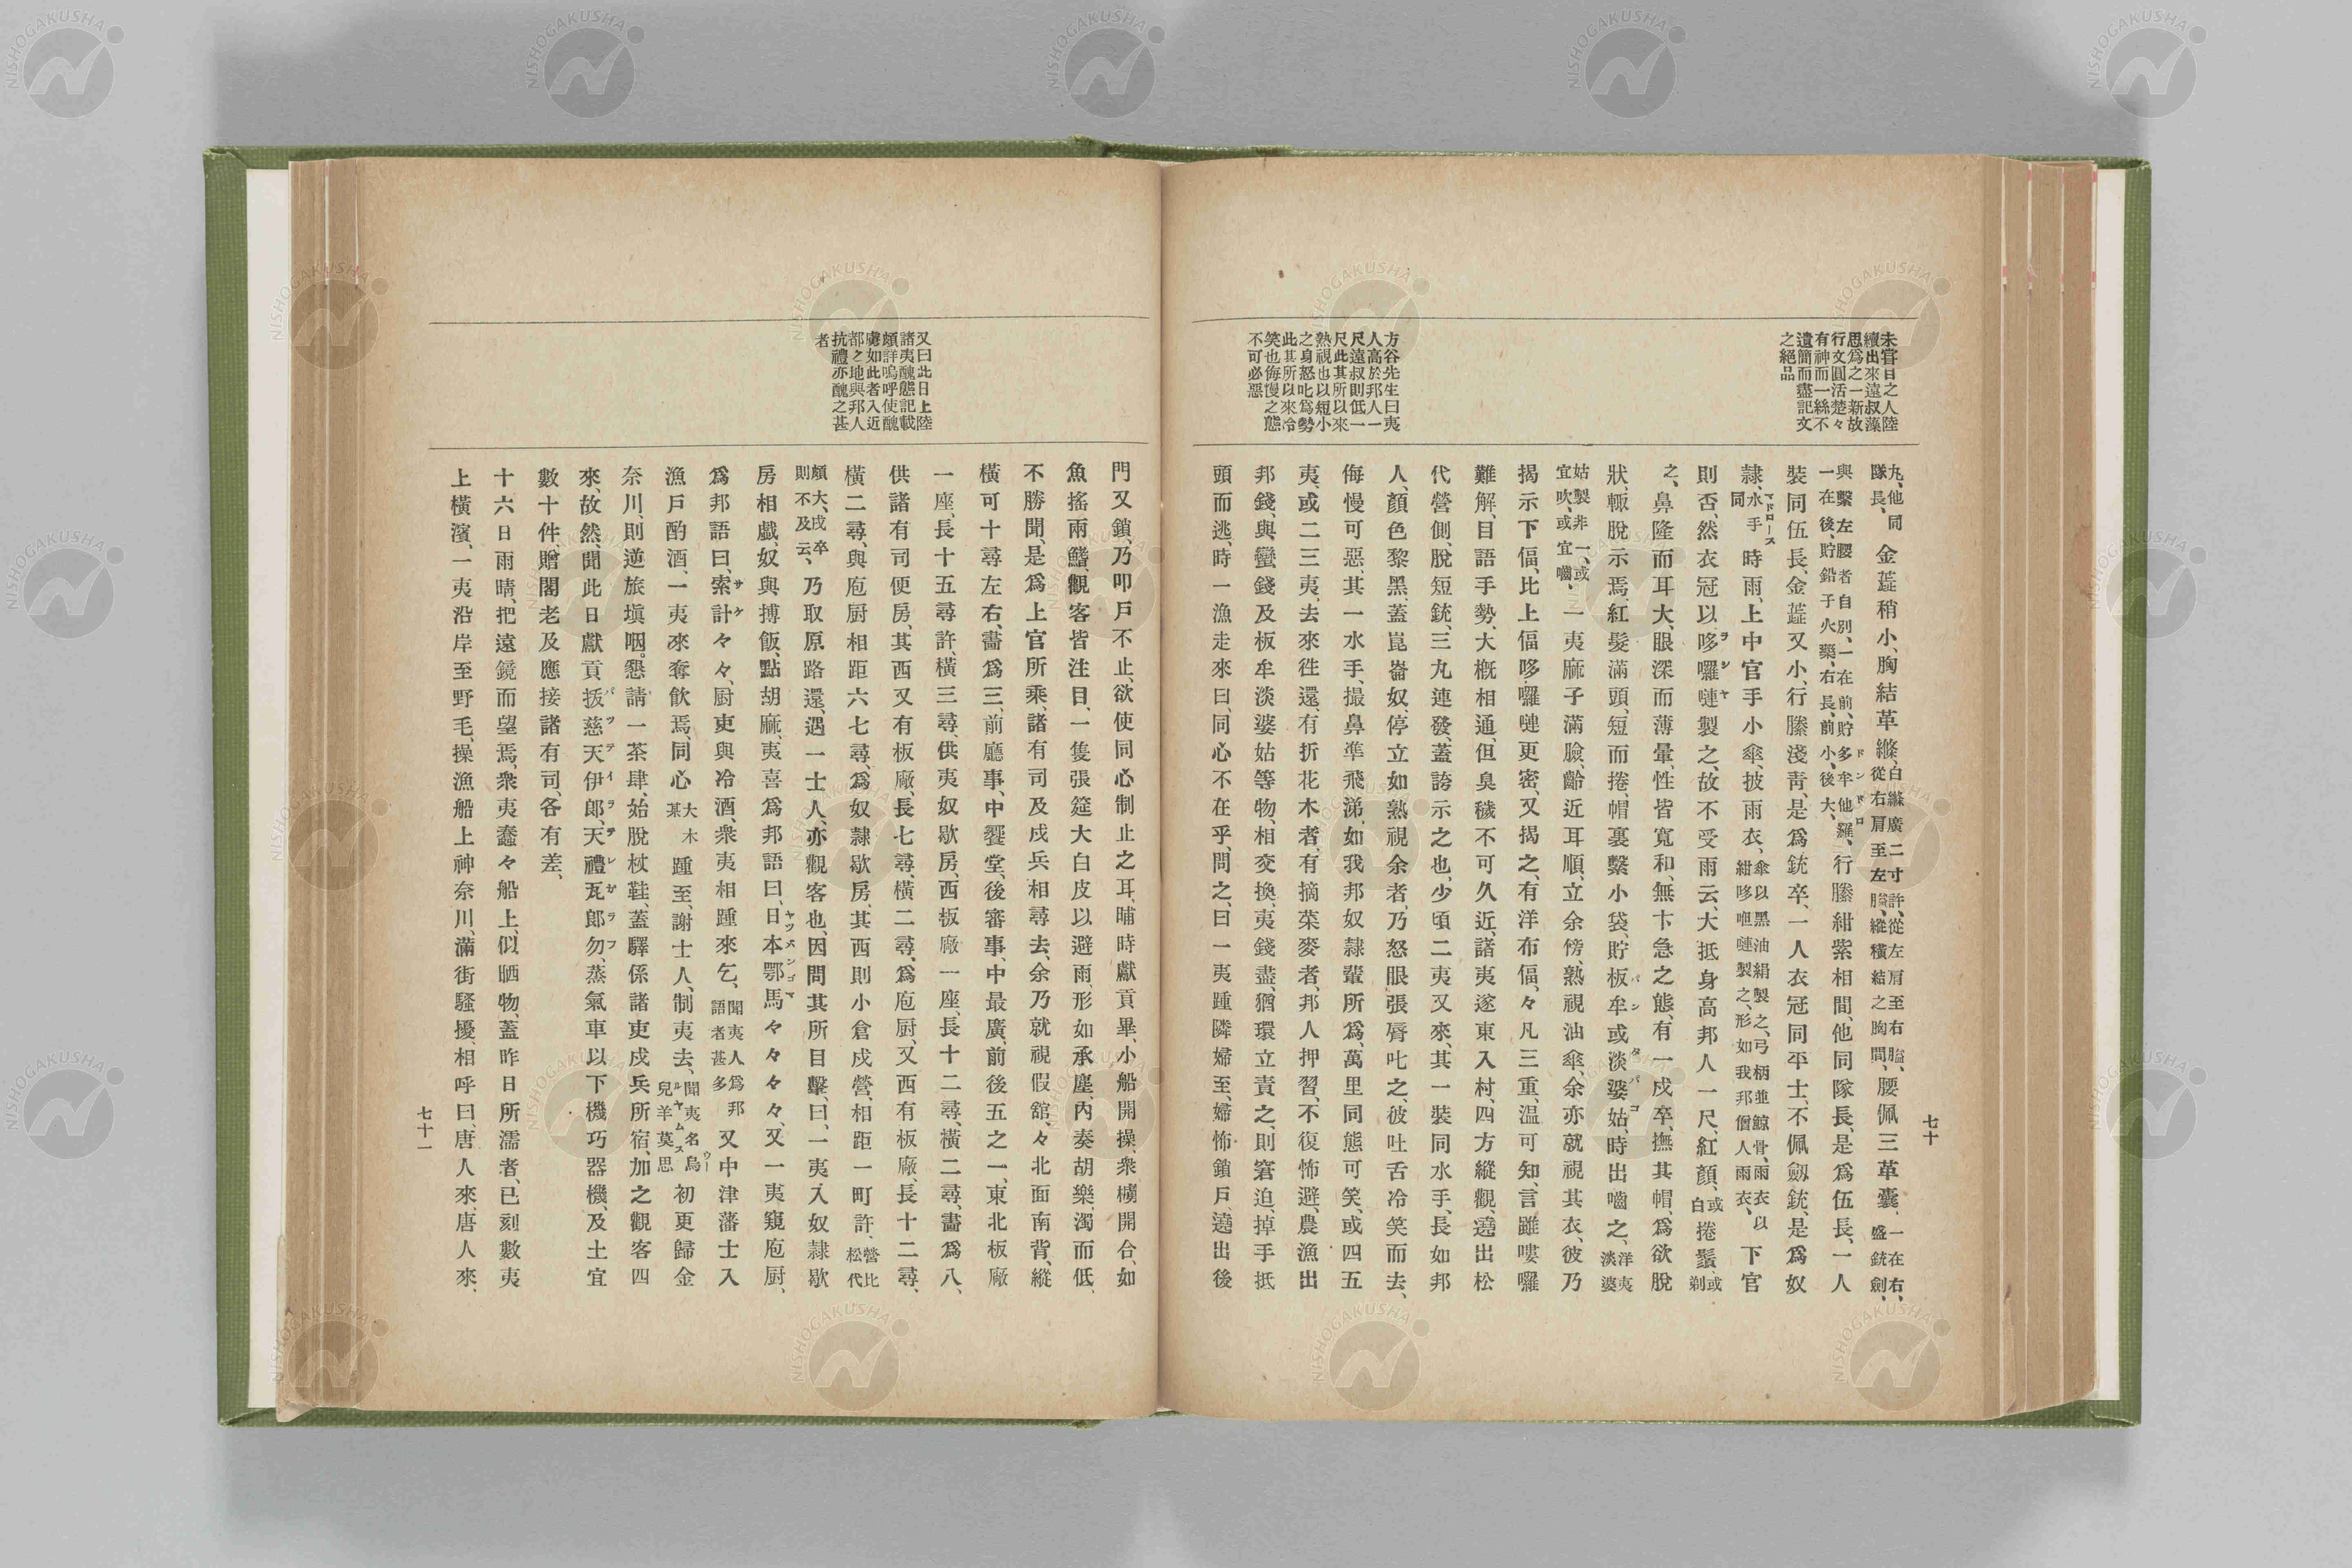 七十
未嘗日之人陸
續出來遠叔藻
思爲之一新故
行文圓活楚々
有神而一絲不
遺簡而盡記文
之絕品
方谷先生曰夷
人高於邦人一
尺遠叔則低一
尺此其所以來
熟視也以短小
之身怒叱爲勢
此其所以來冷
笑也侮慢之態
不可必惡
九、他同隊長、金蕋稍小、胸結革縧、白縧廣二寸許、從左肩至右脇、從右肩至左脇、縱橫結之胸間、腰佩三革囊、一在右、盛銃劍、
一在後、貯鉛子火藥、右長、前小、後大、與繫左腰者自別、一在前、貯多牟他羅、行縢紺紫相間、他同隊長、是爲伍長、一人
裝同伍長、金蕋又小、行縢淺靑、是爲銃卒、一人衣冠同平士、不佩劒銃、是爲奴
隷、水手同時雨、上中官手小傘、披雨衣、傘以黑油絹製之、弓柄並鯨骨、雨衣、以紺哆呾嗹製之形如我邦僧人雨衣、下官
則否、然衣冠以哆囉嗹製之、故不受雨云、大抵身高邦人一尺、紅顏、或白捲鬚、或剃
之、鼻隆而耳大、眼深而薄暈、性皆寬和、無卞急之態、有一戍卒、撫其帽、爲欲脫
狀、輙脫示焉、紅髮滿頭、短而捲、帽裏繫小袋、貯板牟或淡婆姑、時出嚙之、洋夷淡婆
姑製非一、或宜吹、或宜嚙、一夷麻子滿臉、齡近耳順、立余傍、熟視油傘、余亦就視其衣、彼乃
揭示下偪、比上偪哆囉嗹更密、又揭之、有洋布偪、々凡三重、溫可知、言雖嘍囉
難解、目語手勢、大槪相通、但臭穢不可久近、諸夷遂東入村、四方縱觀、遶出松
代營側、脫短銃、三九連發、蓋誇示之也、少頃二夷又來、其一裝同水手、長如邦
人、顏色黎黑、蓋崑崙奴、停立如熟視余者、乃怒眼張脣叱之、彼吐舌冷笑而去、
侮慢可惡、其一水手、撮鼻準飛涕、如我邦奴隷輩所爲、萬里同態可笑、或四五
夷、或二三夷、去來徃還、有折花木者、有摘菜麥者、邦人押習、不復怖避、農漁出
邦錢、與蠻錢及板牟淡婆姑等物、相交換、夷錢盡、猶環立責之、則窘迫、掉手抵
頭而逃、時一漁走來曰、同心不在乎、問之、曰一夷踵隣婦至、婦怖鎖戶、遶出後
又曰此日上陸
諸夷醜態記載
頗詳嗚呼使醜
虜如此者入近
都之地與邦人
抗禮亦醜之甚
者
門又鎖、乃叩戶不止、欲使同心制止之耳、晡時獻貢畢、小船開操、衆櫓開合、如
魚搖兩鰭、觀客皆注目、一隻張筵大白皮以避雨、形如承塵、內奏胡樂、濁而低、
不勝聞、是爲上官所乘、諸有司及戍兵相尋去、余乃就視假舘、々北面南背、縱
橫可十尋左右、畵爲三、前廳事、中饗堂、後審事、中最廣、前後五之一、東北板廠
一座、長十五尋許、橫三尋、供夷奴歇房、西板廠一座、長十二尋、橫二尋、畵爲八、
供諸有司便房、其西又有板廠、長七尋、橫二尋、爲庖厨、又西有板廠、長十二尋、
橫二尋、與庖厨相距六七尋、爲奴隷歇房、其西則小倉戍營、相距一町許、營比松代
頗大、戍卒則不及云、乃取原路還、遇一士人、亦觀客也、因問其所目擊、曰、一夷入奴隷歇
房相戯、奴與搏飯、點胡麻、夷喜爲邦語曰、日本鄂馬々々々々、又一夷窺庖厨、
爲邦語曰、索計々々、厨吏與冷酒、衆夷相踵來乞、聞夷人爲邦語者甚多又中津藩士入
漁戶酌酒、一夷來奪飮焉、同心大木某踵至、謝士人、制夷去、聞夷名烏兒羊莫思初更歸金
奈川、則逆旅塡咽。懇請一茶肆、始脫杖鞋、蓋驛係諸吏戍兵所宿、加之觀客四
來、故然、聞此日獻貢拔慈天伊郎、天禮瓦郎勿、蒸氣車以下機巧器機、及土宜
數十件、贈閣老及應接諸有司、各有差、
十六日雨晴、把遠鏡而望焉、衆夷蠢々船上、似晒物、蓋昨日所濡者、已刻數夷
上橫濱、一夷沿岸至野毛、操漁船上神奈川、滿街騷擾、相呼曰、唐人來、唐人來、
七十一